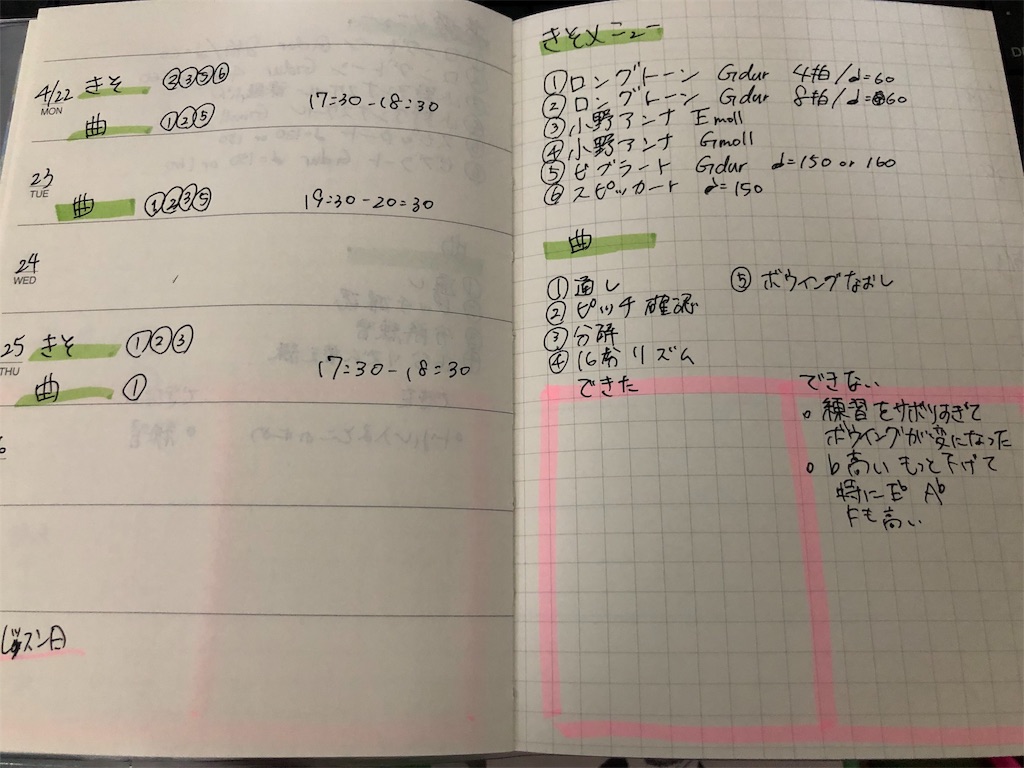 4/22 きそ ②③⑤⑥
MON
17=30-18=30
曲 ①②⑤
23
TUE
曲 ①②③⑤ 19=30-20=30
24
WED
25 きそ ①②③
THU
17=30-18=30
曲 ①
レッスン日
きそメニュー
①ロングトーン Gdur 4拍/d=60
②ロングトーン Gdur 8拍/d=60
③小野アンナ Emoll
④小野アンナ Gmoll
⑤ビブラート Gdur d=150 or 160
⑥スピッカート d=150
曲
①通し ⑤ボウイングなおし
②ピッチ確認
③分解
④16分リズム
できた できない
○練習をサボりすぎて
ボウイングが変になった
○♭高い もっと下げて
特にE♭ A♭
Fも高い